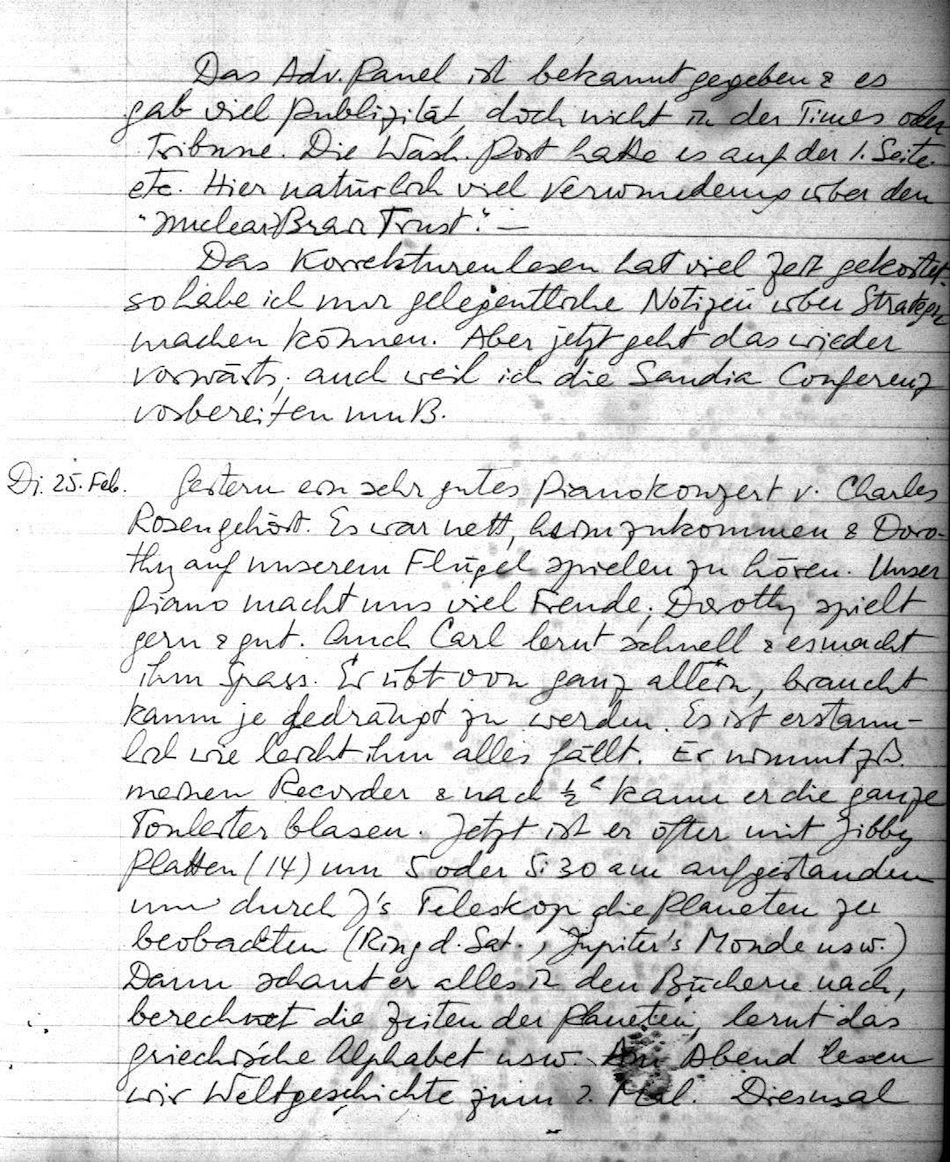 Das Adv. Panel ist bekannt gegeben & es
gab viel Publizität, doch nicht in der Times oder
Tribune. Die Wash. Post hatte es auf der 1. Seite
etc. Hier natürlich viel Verwunderung über den
"Nuclear Brain Trust". —
Das Korrekturenlesen hat viel Zeit gekostet,
so habe ich nur gelegentliche Notizen über Strategie
machen können. Aber jetzt geht das wieder
vorwärts, auch weil ich die Sandia Conferenz
vorbereiten muß.
Di. 25. Feb. Gestern ein sehr gutes Pianokonzert v. Charles
Rosen gehört. Es war nett, heimzukommen & Doro-
thy auf unserem Flügel spielen zu hören. Unser
Piano macht uns viel Freude, Dorothy spielt
gern & gut. Auch Carl lernt schnell & es macht
ihm Spass. Er übt von ganz allein, braucht
kaum je gedrängt zu werden. Es ist erstaun-
lich wie leicht ihm alles fällt. Er nimmt z.B.
meinen Recorder & nach ½ʰ kann er die ganze
Tonleiter blasen. Jetzt ist er öfter mit Jibby
Platten (14) um 5 oder 5:30 am aufgestanden
um durch J's Teleskop die Planeten zu
beobachten (Ring d. Sat., Jupiter's Monde usw.)
Dann schaut er alles in den Büchern nach,
berechnet die Zeiten der Planeten, lernt das
griechische Alphabet usw. Am Abend lesen
wir Weltgeschichte zum 2. Mal. Diesmal